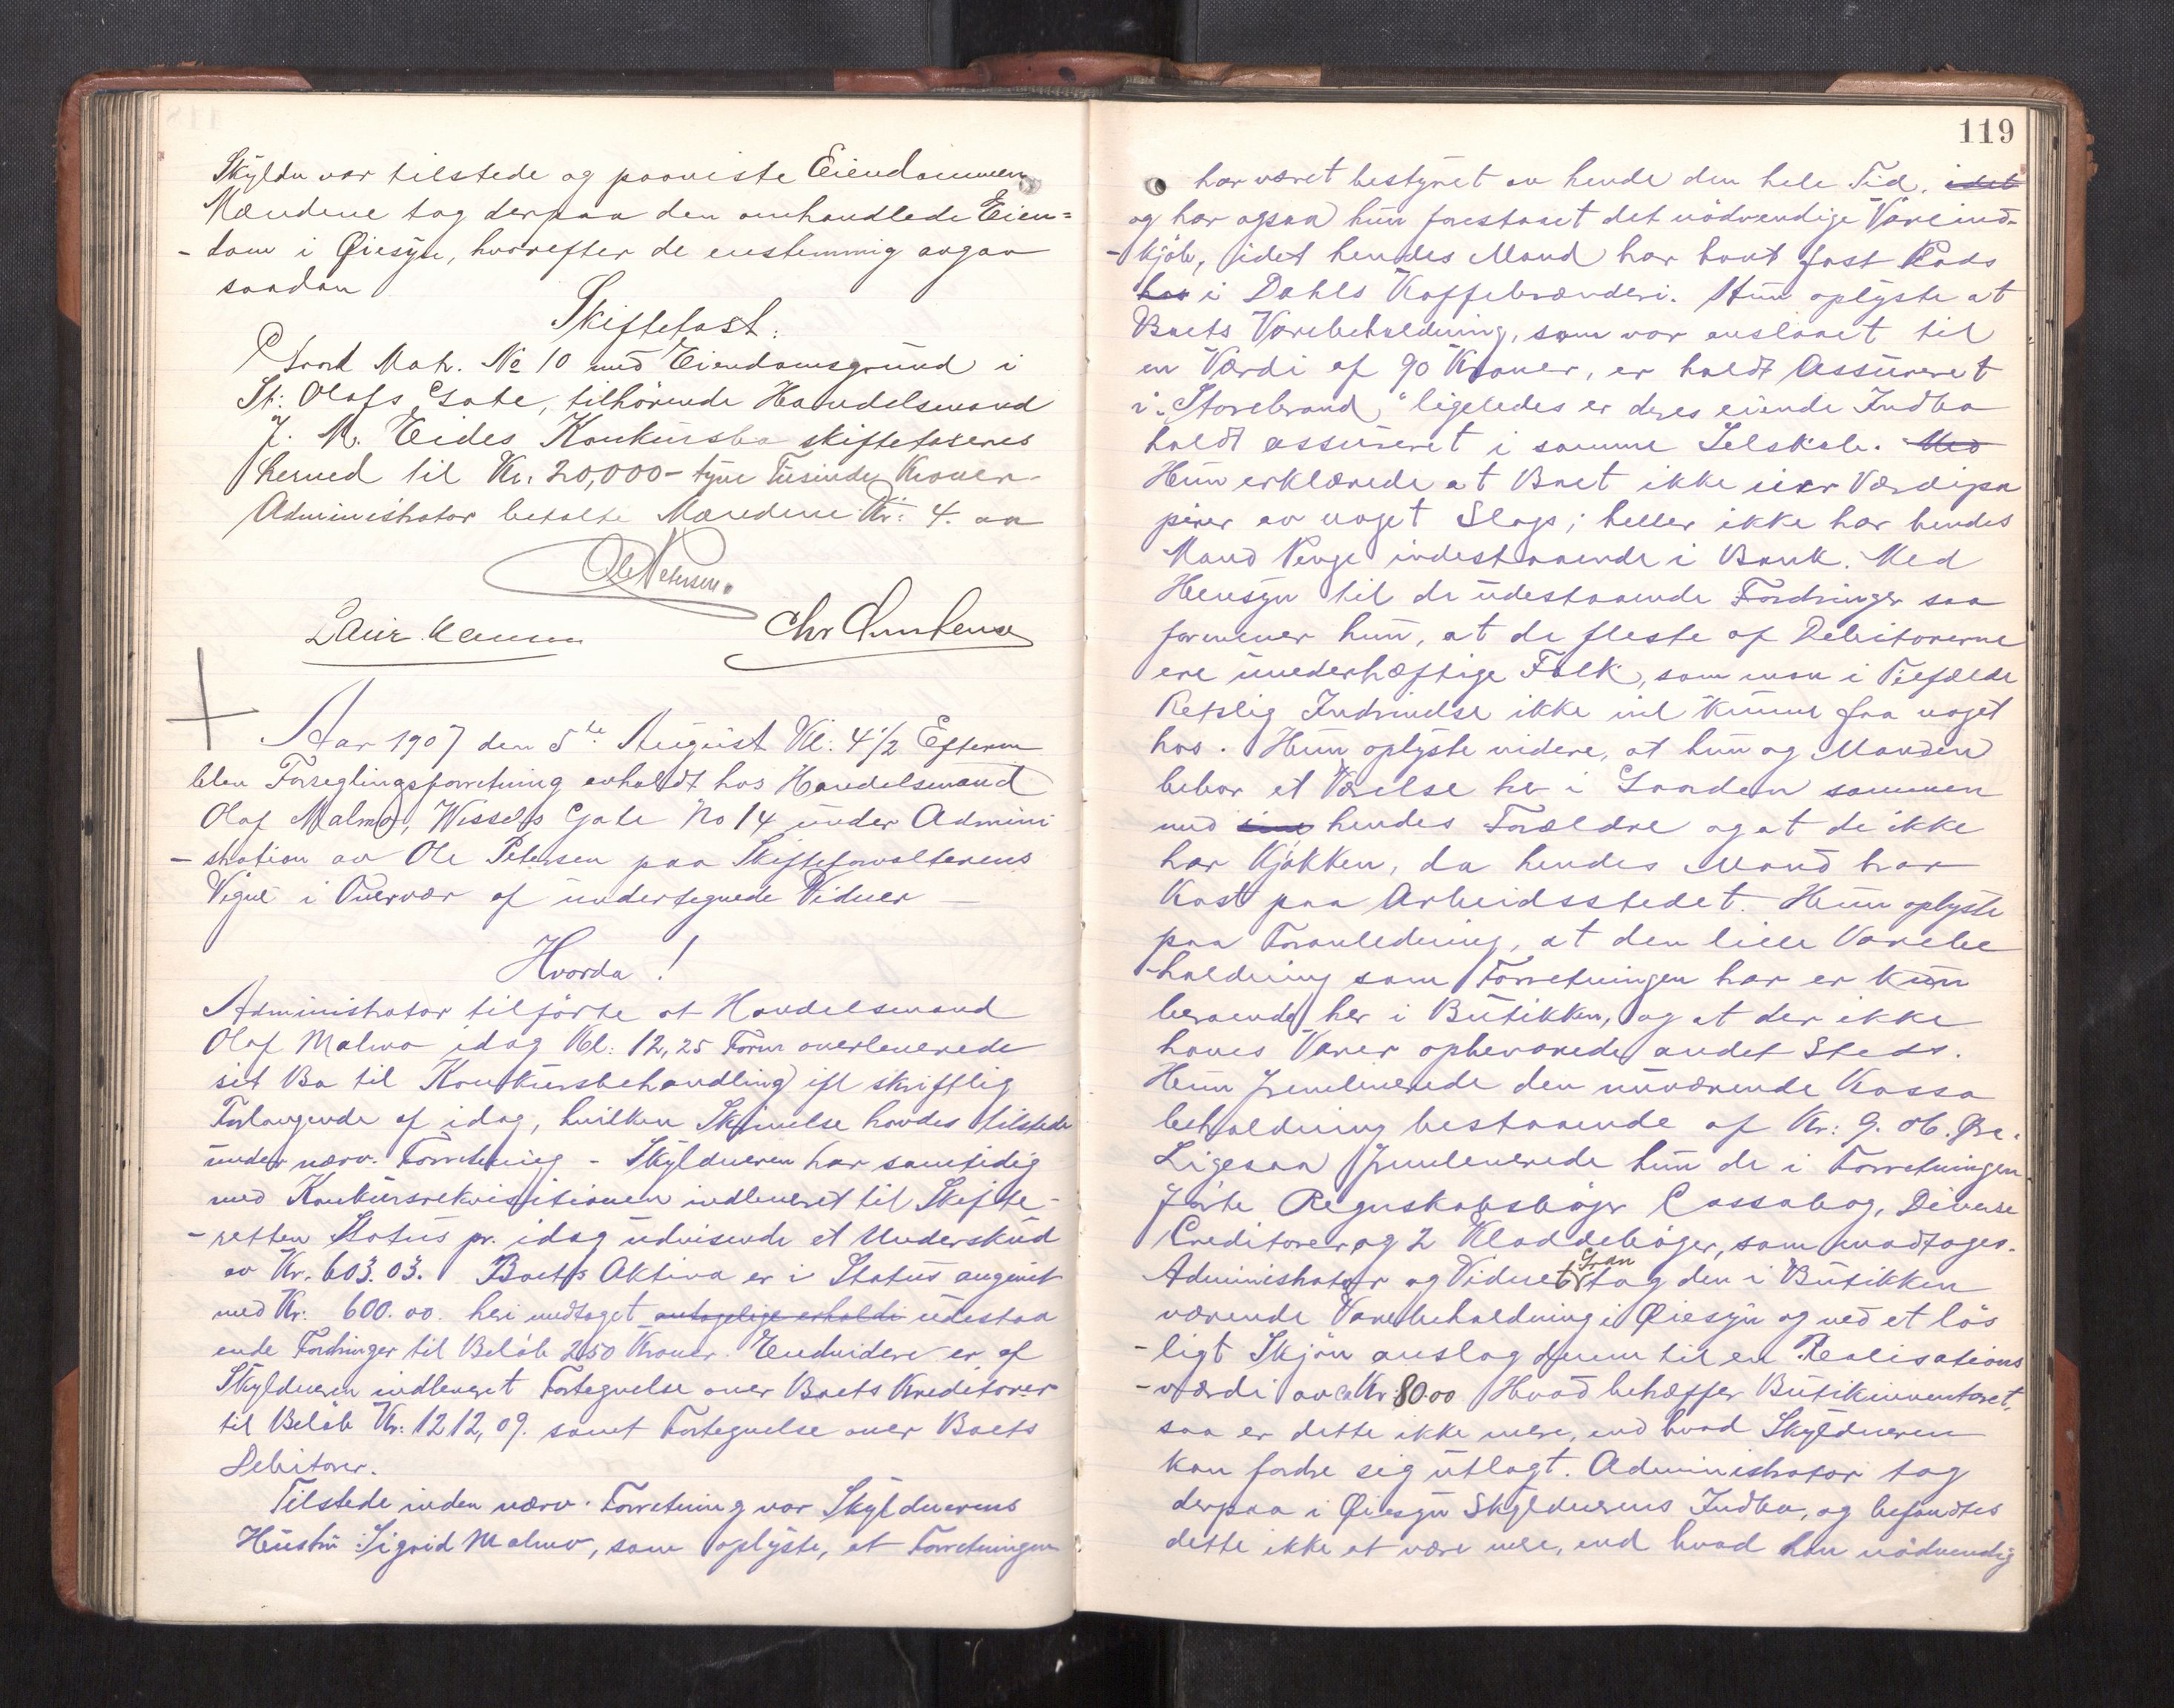 Skyldn var tilstede og paaviste Eiendommen
Mændene tog derpaa den omhandlede Eien=
-dom i Øiesyn, hvorefter de enstemmig avgav
saadan
Skiftetast:
Gaard Matr. No 10 med Eiendomsgrund i
St: Olafs Gate, tilhörende Handelsmand
J. M. Eides Konkursbo skiftetaseres
herved til Kr. 20,000 - tyve Tusinde Kroner
Administrator betalte Mændene Kr: 4. aa
Ole Petersen.
Laur. Hansen
Chr
Aar 1907 den 5te August Kl: 4½ Efterm
blev Forseglingsforretning avholdt hos Handelsmand
Olaf Malmo, Wissels Gate No 14 under Admini
-stration av Ole Petersen paa Skifteforvalterens
Vegne i Overvær af undertegnede Vidner —
Hvorda!
Administrator tilförte at Handelsmand
Olaf Malmo idag Kl: 12,25 Form overleverede
sit Bo til Konkursbehandling ifl skriftlig
Forlangende af idag, hvilken Skrivelse havdes tilstede
under nærv. Forretning - Skyldneren har samtidig
med Konkursrekvisitionen indleveret til Skifte-
-retten Status pr. idag udvisende et Underskud
av Kr. 603.03. Boets Aktiva er i Status angivet
med Kr: 600.00. heri medtaget antagelige erholdt udestaa
ende Fordringer til Belöb 250 Kroner. Endvidere er af
Skyldneren indleveret Fortegnelse over Boets Kreditorer
til Belöb Kr: 1212,09. samt Fortegnelse over Boets
Debitorer.
Tilstede inden nærv. Forretning var Skyldnerens
Hustru Sigrid Malmo, som oplyste, at Forretningen
119
har været bestyret av hende den hele Tid, idet
og har ogsaa hun forestaaet det nödvendige Vareind-
-kjöb, idet hendes Mand har havt fast Plads
hos i Dahls Kaffebrænderi. Hun oplyste at
Boets Varebeholdning, som var anslaaet til
en Værdi af 90 Kroner, er holdt Assureret
i "Storebrand," ligeledes er deres eiende Indbo
holdt assureret i samme Selskab. Med
Hun erklærede at Boet ikke eier Værdipa
pirer av noget Slags; heller ikke har hendes
Mand Penge indestaaende i Bank. Med
Hensyn til de udestaaende Fordringer saa
formener hun, at de fleste af Debitorerne
ere uvederhæftige Folk, som man i Tilfælde
Retslig Inddrivelse ikke vil kunne faa noget
hos. Hun oplyste videre, at hun og Manden
bebor et Værelse her i Gaarden sammen
med sine hendes Forældre og at de ikke
har Kjökken, da hendes Mand har
Kost paa Arbeidsstedet. Hun oplyste
paa Foranledning, at den lille Varebe
-holdning som Forretningen har er kun
beroende her i Butikken, og at der ikke
haves Varer opbevarede andet Steds.
Hun fremleverede den nuværende Kassa
beholdning bestaaende af Kr: 9. 06. Øre.
Ligesaa fremleverede hun de i Forretningen
förte Regnskabsböger Cassabog, Diverse
Creditorer og 2 Kladdeböger, som modtoges.
Administrator og Vidnet Gran tog den i Butikken
værende Varebeholdning i Øiesyn og ved et lös
-ligt Skjön anslog denne til en Realisations
-værdi av ca Kr: 80.00 Hvad betræffer Butikinventaret,
saa er dette ikke mere, end hvad Skyldneren
kan fordre sig utlagt. Administrator tog
derpaa i Øiesyn Skyldnerens Indbo, og befandtes
dette ikke at være mere, end hvad han nödvendig